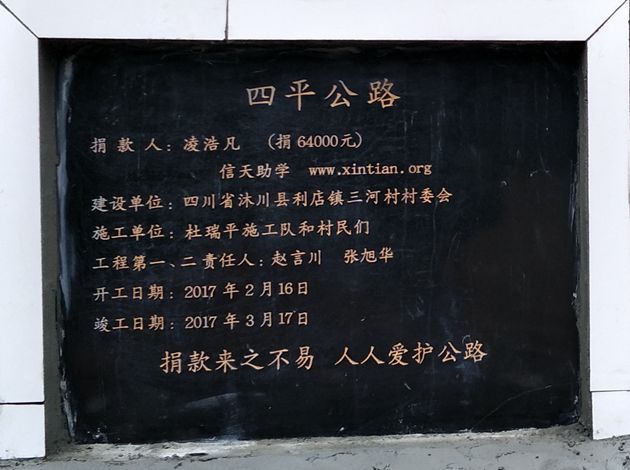 四平公路
捐款人：凌浩凡 （捐64000元）
信天助学 www.xintian.org
建设单位：四川省沐川县利店镇三河村村委会
施工单位：杜瑞平施工队和村民们
工程第一、二责任人：赵言川 张旭华
开工日期：2017年2月16日
竣工日期：2017年3月17日
捐款来之不易 人人爱护公路